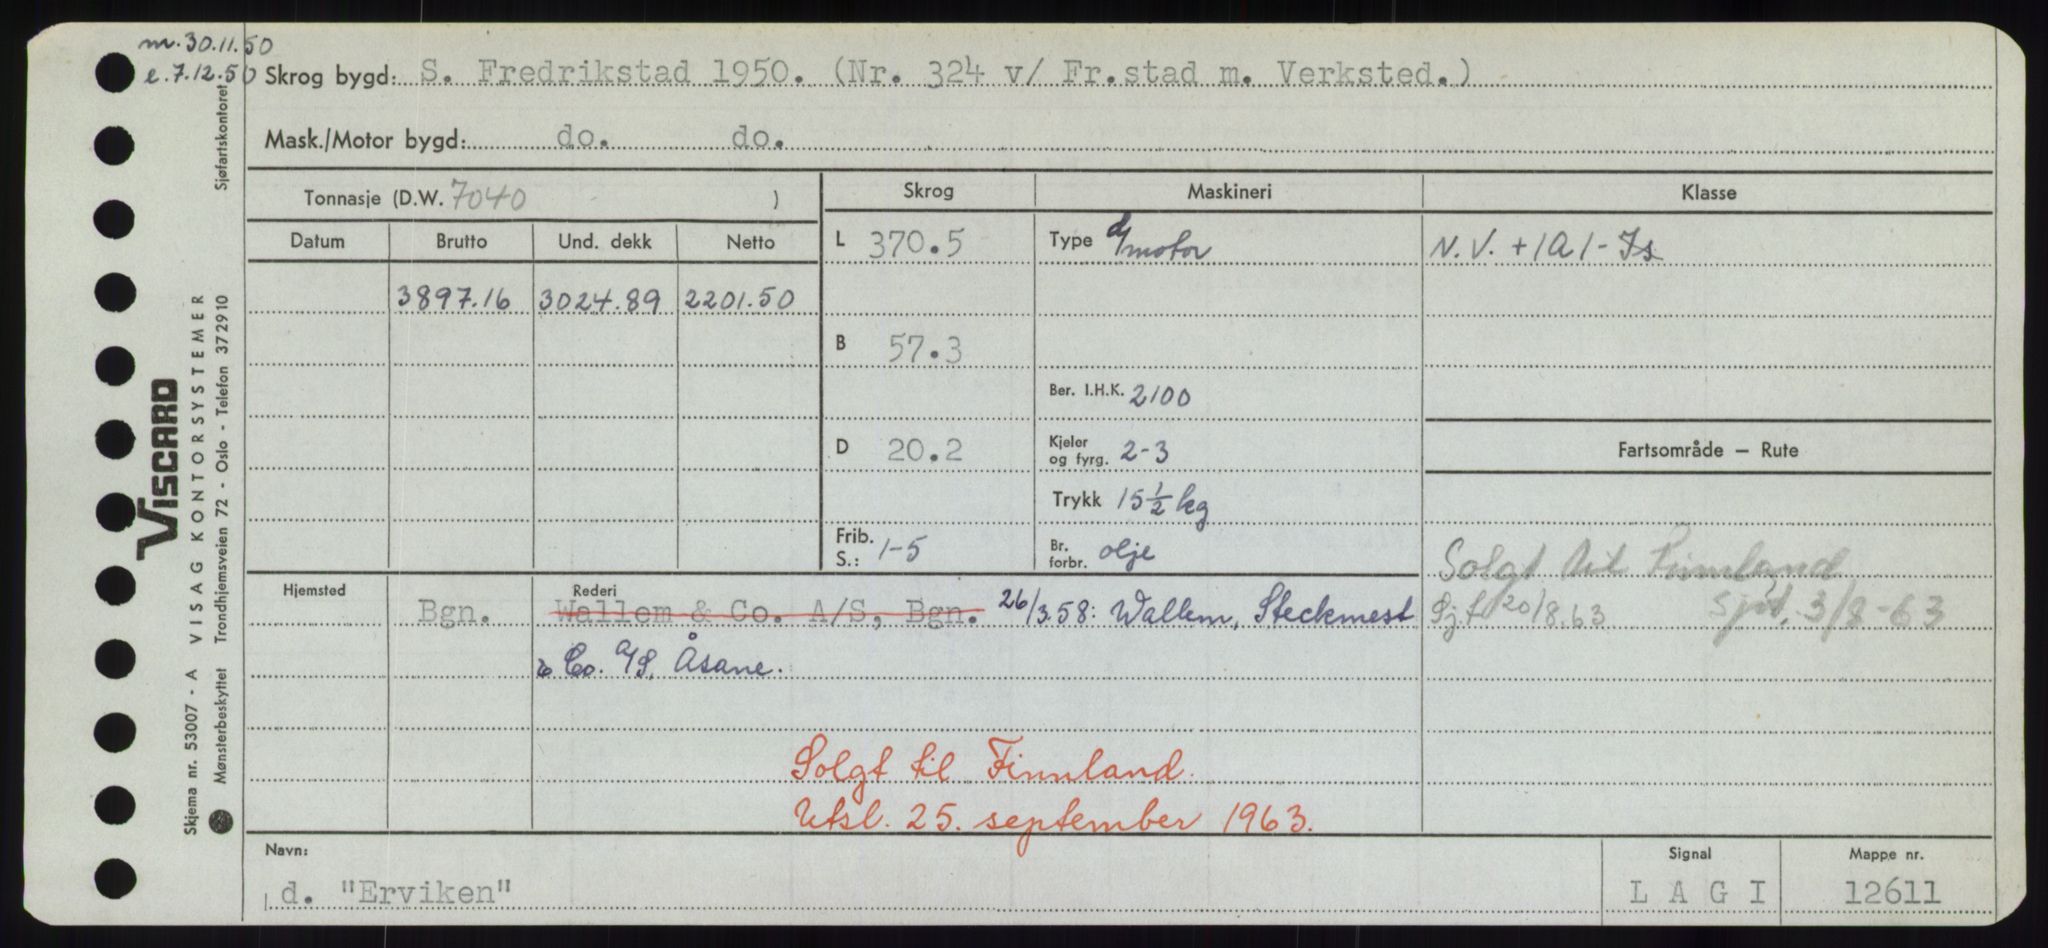 m. 30.11.50
e. 7.12.50
Skrog bygd: S. Fredrikstad 1950. (Nr. 324 v/ Fr.stad m. Verksted.)
Mask./Motor bygd: do. do.
Tonnasje (D.W. 7040 )
Skrog Maskineri Klasse
Datum Brutto Und. dekk Netto
L 370.5 Type d/motor N.V. +1A1-Is
3897.16 3024.89 2201.50
B 57.3
Ber. I.H.K. 2100
D 20.2 Kjeler og fyrg. 2-3 Fartsområde — Rute
Trykk 15 1/2 kg
Frib. S.: 1-5 Br. forbr. olje Solgt til Finnland
Hjemsted Rederi
Bgn. Wallem & Co. A/S, Bgn. 26/3.58: Wallem, Steckmest Sjf 20/8.63 Sjøf. 3/8-63
& Co. A/S, Åsane.
Solgt til Finnland.
Utsl. 25. september 1963.
Navn: Signal Mappe nr.
d. "Erviken" L A G I 12611
VISCARD
VISAG KONTORSYSTEMER
Skjema nr. 53007 - A
Mønsterbeskyttet Trondhjemsveien 72 - Oslo - Telefon 372910 Sjøfartskontoret